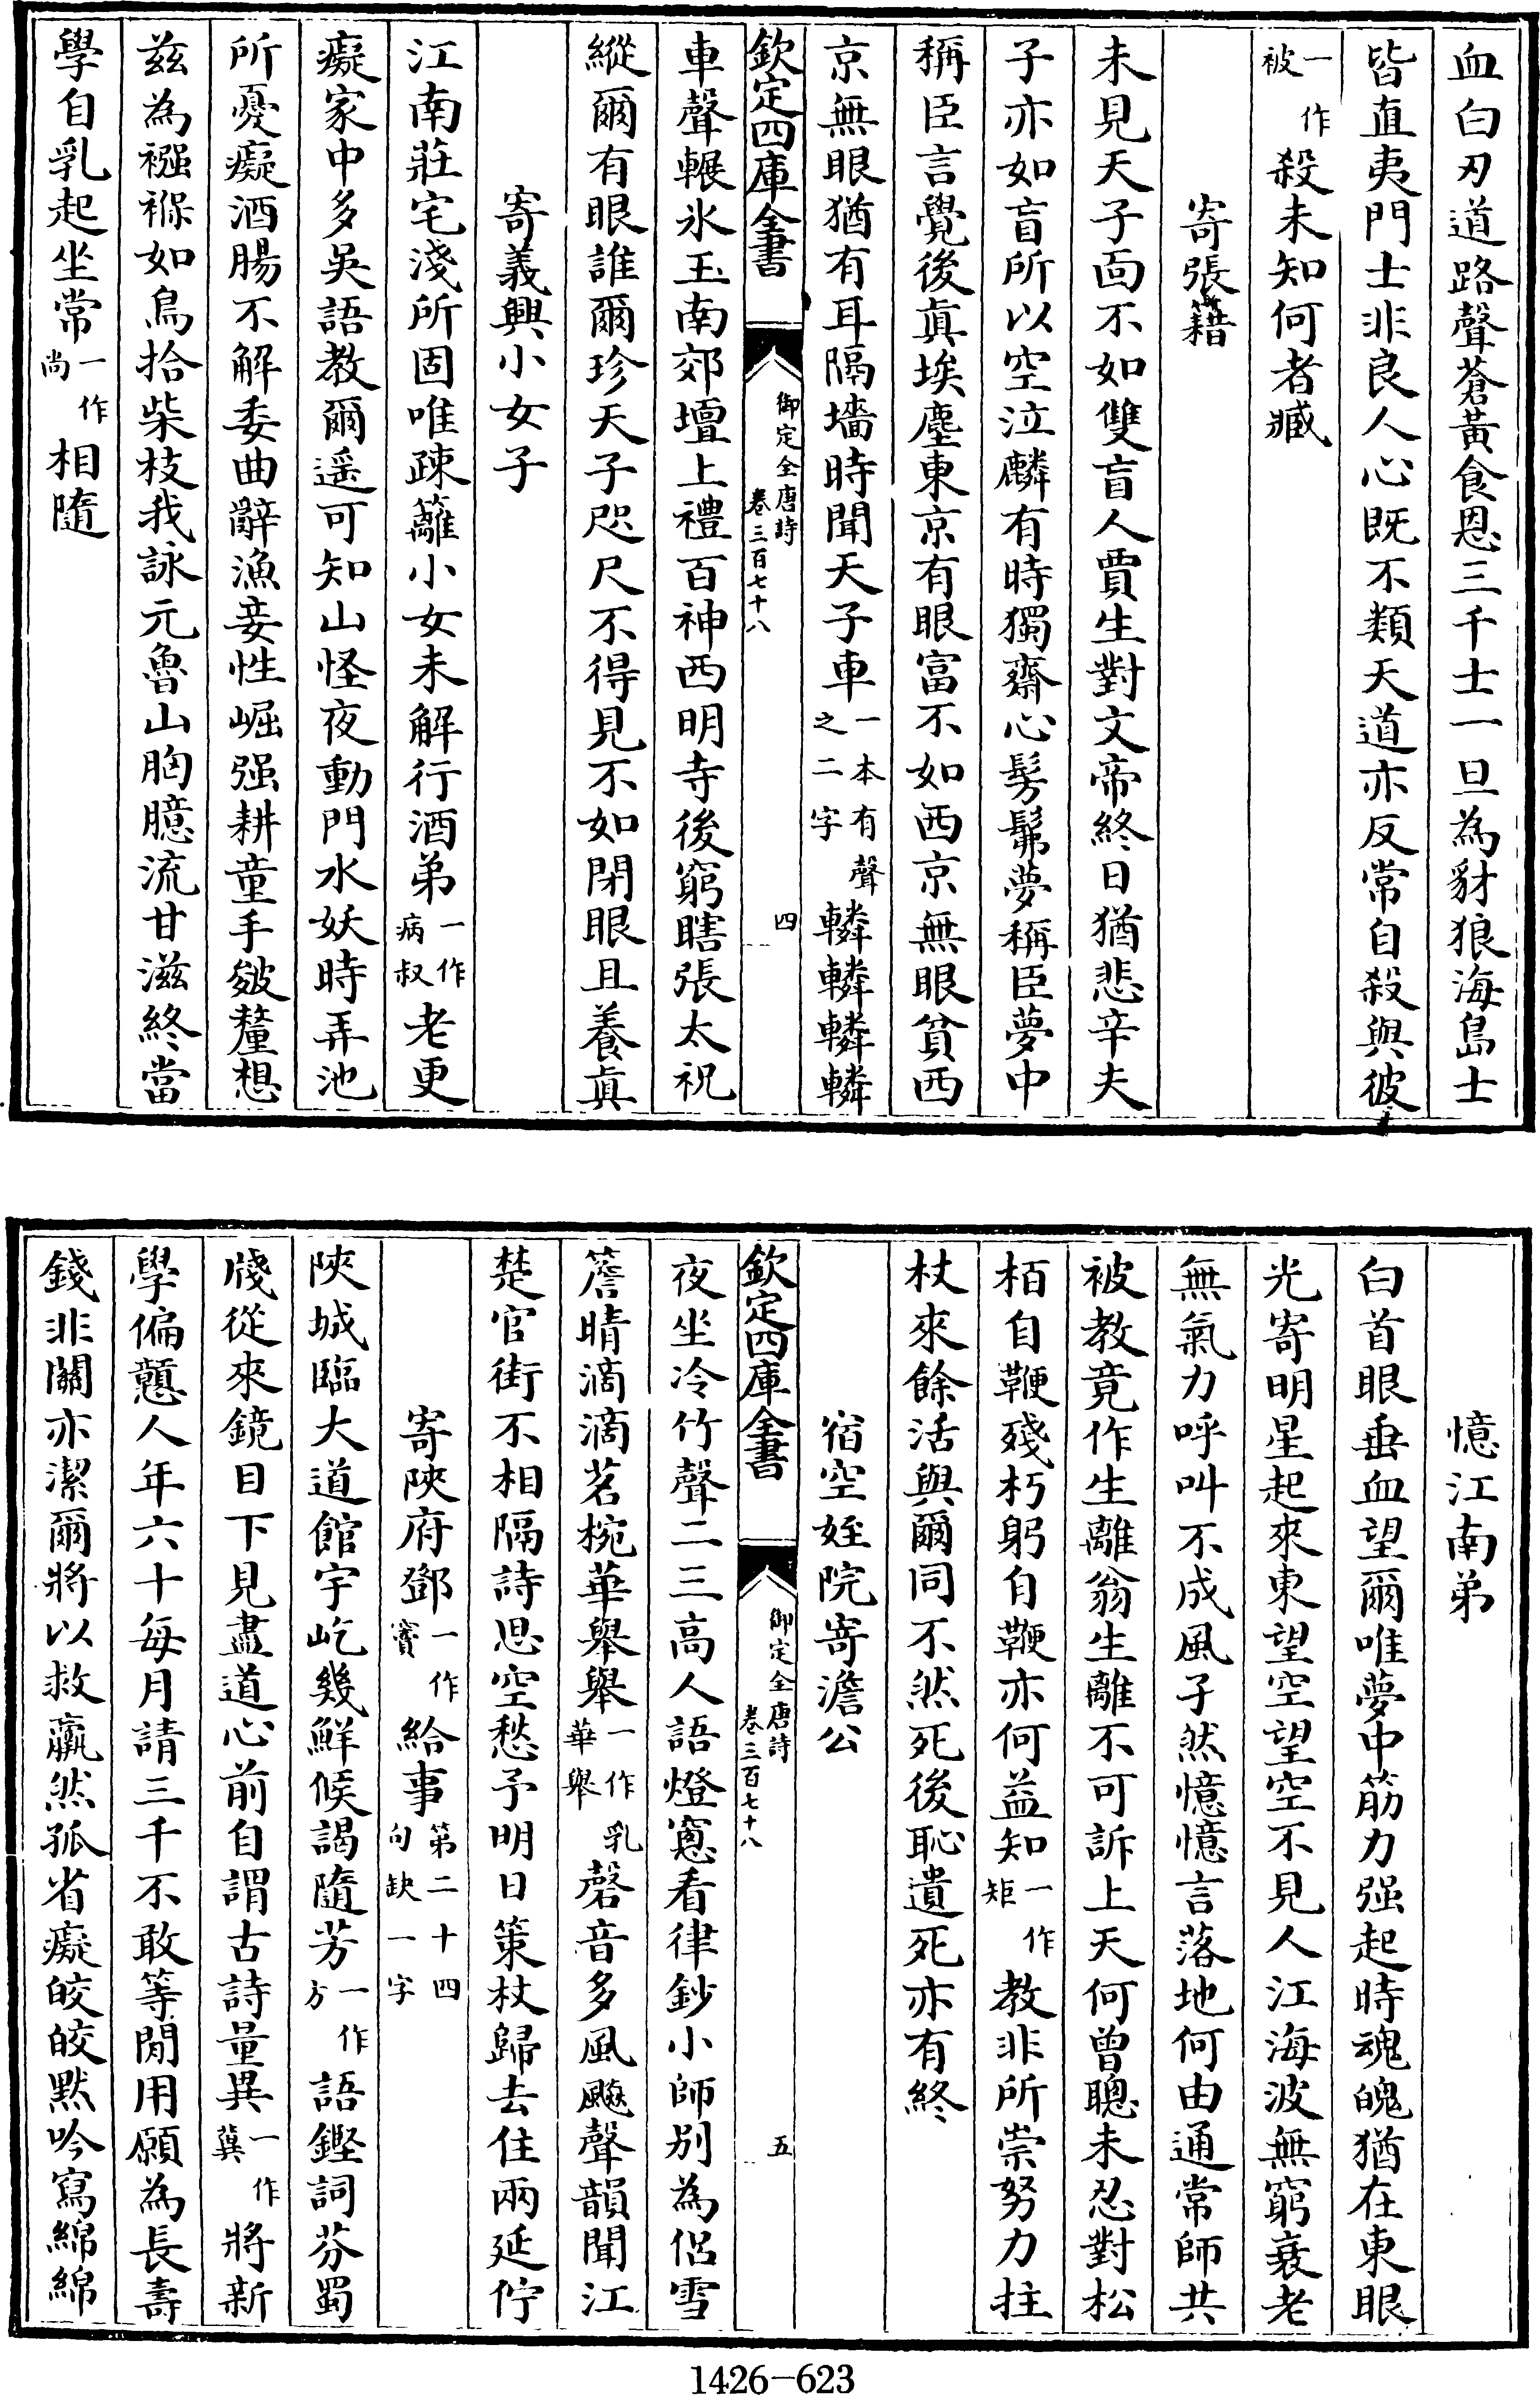 血白刃道路聲蒼黃食恩三千士一旦為豺狼海島士
皆直夷門士非良人心既不類天道亦反常自殺與彼
一作被殺未知何者臧
寄張籍
未見天子面不如雙盲人賈生對文帝終日猶悲辛夫
子亦如盲所以空泣麟有時獨齋心髣髴夢稱臣夢中
稱臣言覺後真埃塵東京有眼富不如西京無眼貧西
京無眼猶有耳隔墻時聞天子車一本有聲之二字轔轔轔轔
欽定四庫全書
御定全唐詩
卷三百七十八
四
車聲輾氷玉南郊壇上禮百神西明寺後窮瞎張太祝
縱爾有眼誰爾珍天子咫尺不得見不如閉眼且養真
寄義興小女子
江南莊宅淺所固唯疎籬小女未解行酒弟一作病叔老更
癡家中多吳語教爾遥可知山怪夜動門水妖時弄池
所憂癡酒腸不解委曲辭漁妾性崛强耕童手皴釐想
茲為襁褓如鳥拾柴枝我詠元魯山胸臆流甘滋終當
學自乳起坐常一作尚相隨
憶江南弟
白首眼垂血望爾唯夢中筋力强起時魂魄猶在東眼
光寄明星起來東望空望空不見人江海波無窮衰老
無氣力呼叫不成風孑然憶憶言落地何由通常師共
被教竟作生離翁生離不可訴上天何曾聰未忍對松
栢自鞭殘朽躬自鞭亦何益知一作矩教非所崇努力拄
杖來餘活與爾同不然死後恥遺死亦有終
宿空姪院寄澹公
欽定四庫全書
御定全唐詩
卷三百七十八
五
夜坐冷竹聲二三高人語燈窻看律鈔小師别為侶雪
簷晴滴滴茗椀華舉舉一作乳華舉磬音多風飈聲韻聞江
楚官街不相隔詩思空愁予明日策杖歸去住兩延佇
寄陜府鄧一作竇給事第二十四句缺一字
陜城臨大道館宇屹幾鮮候謁隨芳一作方語鏗詞芬蜀
牋從來鏡目下見盡道心前自謂古詩量異一作冀將新
學偏戇人年六十每月請三千不敢等閒用願為長壽
錢非關亦潔爾將以救羸然孤省癡皎皎默吟寫綿綿
1426-623